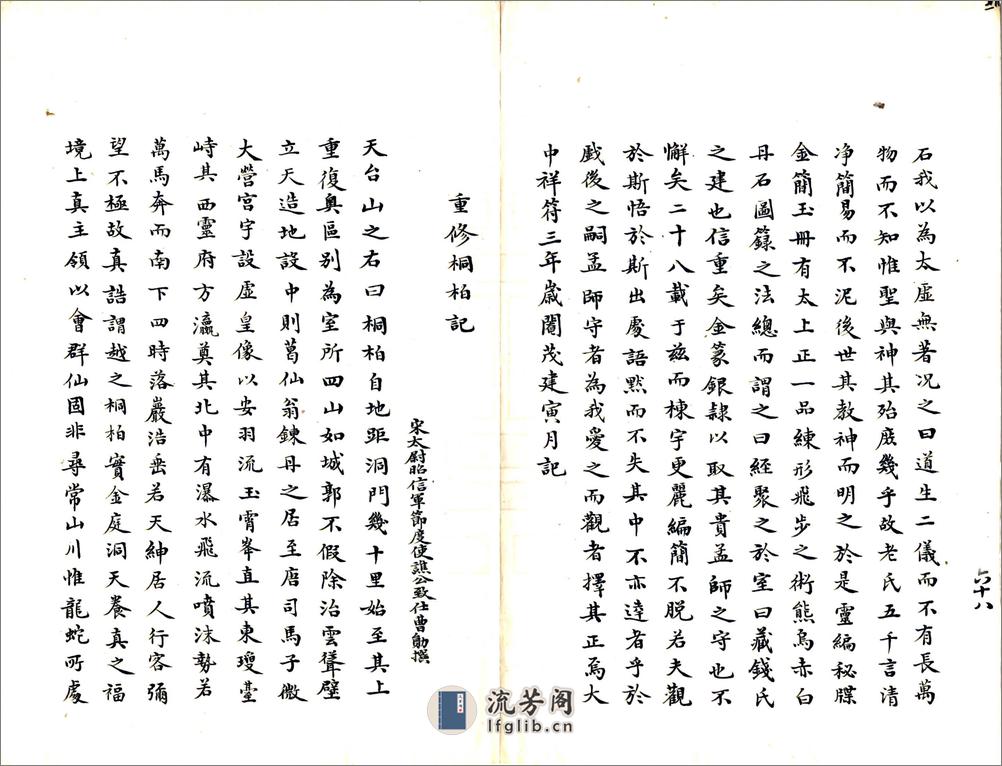 石我以為太虛無著况之曰道生二儀而不有長萬
物而不知惟聖與神其殆庶幾乎故老氏五千言清
净簡易而不泥後世其教神而明之於是靈編秘牒
金簡玉冊有太上正一品練形飛步之術熊鳥赤白
丹石圖籙之法總而謂之曰經聚之於室曰藏錢氏
之建也信重矣金篆銀隷以取其貴孟師之守也不
懈矣二十八載于兹而棟宇更麗編簡不脱若夫觀
於斯悟於斯出處語默而不失其中不亦達者乎於
戯後之嗣孟師守者為我愛之而觀者擇其正焉大
中祥符三年嵗閹茂建寅月記
六十八
重修桐柏記
宋太尉昭信軍節度使譙公致仕曹勛撰
天台山之右曰桐柏自地距洞門幾十里始至其上
重復奥區别為室所四山如城郭不假除治雲聳壁
立天造地設中則葛仙翁鍊丹之居至唐司馬子微
大營宫宇設虛皇像以安羽流玉霄峯直其東瓊臺
峙其西靈府方瀛奠其北中有瀑水飛流噴沫勢若
萬馬奔而南下四時落巖浩垂若天紳居人行客彌
望不極故真誥謂越之桐柏實金庭洞天養真之福
境上真主領以會群仙固非尋常山川惟龍蛇所處
流芳阁
lfglib.cn